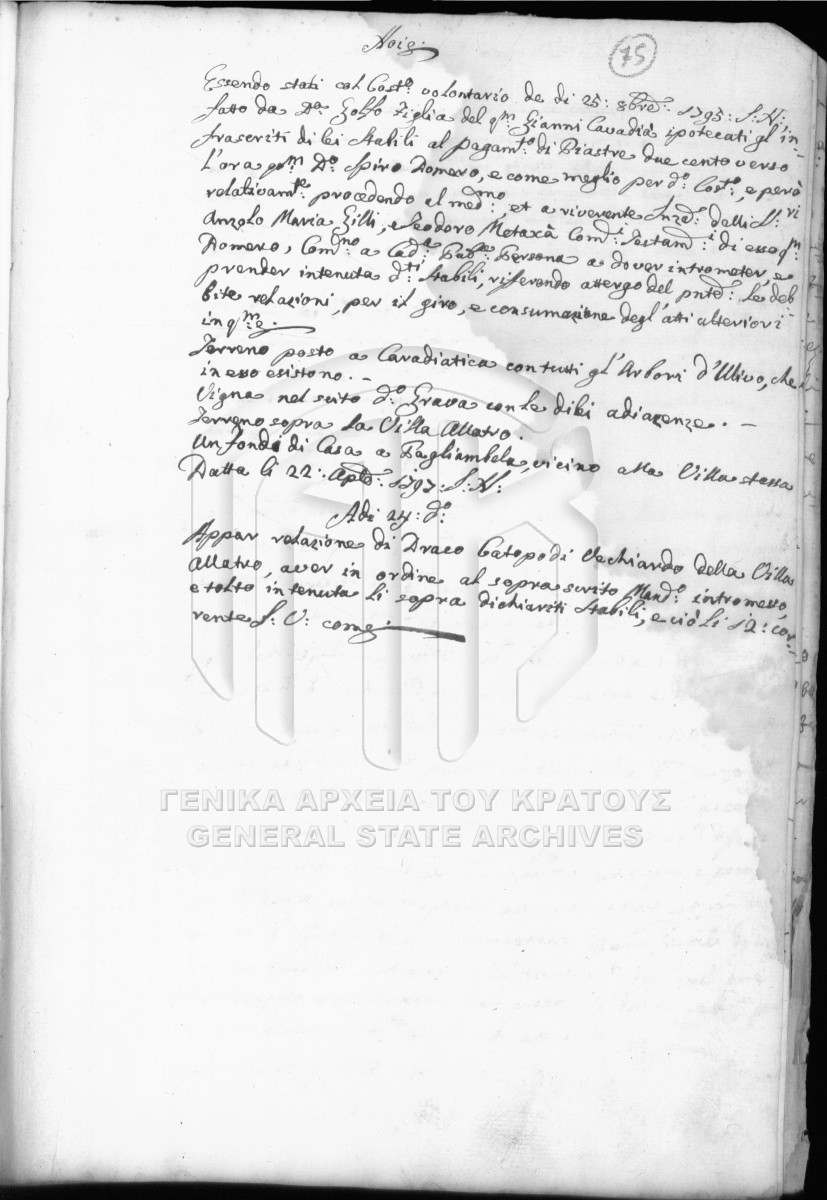 Noi &.
75
Essendo stati col Cost.º volontario de di 25: 8bre: 1795: S: N:
fatto da D.ª Zolfo Figlia del q.m Gianni Cavadia ipotecati gl'in-
frascriti di lei Stabili al pagam.to di Piastre due cento verso
l'ora q.m D.º Spiro Domero, e come meglio per d.º Cost.º, e però
relativam.te procedendo al med.mo, et a riverente Inza: delli S:ri
Anzolo Maria Zilli, e Teodoro Metaxà Com.i Testam.i di esso q.m
Domero, Com.no a Cad.a Pub.ca Persona a dover intrometer, e
prender intenuta d.ti Stabili, riferendo attergo del pnte: le deb-
bite relazioni, per il giro, e consumazione degl'atti ulteriori
in q.m &.
Terreno posto a Cavadiatica con tutti gl'Arbori d'Ulivo, che
in esso esistono. -
Vigna nel scito d.º Grava con le di lei adiacenze. -
Terreno sopra la Villa Allatro.
Un fondo di Casa a Pagliambela, vicino alla Villa stessa
Datta li 22: Aple: 1797: S: N:
Adi 24: d.º
Appar relazione di Draco Catopodi Vechiardo della Villa
Allatro, aver in ordine al sopra scrito Mand.º intromesso,
e tolto in tenuta li sopra dichiariti Stabili, e ciò li 12: cor-
rente S: V: come.
ΓΕΝΙΚΑ ΑΡΧΕΙΑ ΤΟΥ ΚΡΑΤΟΥΣ
GENERAL STATE ARCHIVES